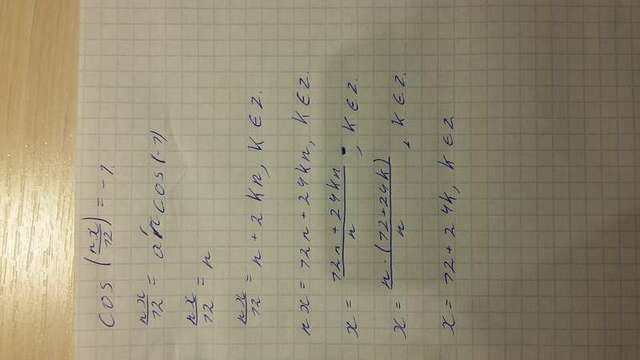 cos (πx/12) = -1
πx/12 = arccos(-1)
πx/12 = π
πx/12 = π + 2kπ, k ∈ Z
πx = 12π + 24kπ, k ∈ Z
x = (12π + 24kπ)/π, k ∈ Z.
x = π·(12+24k)/π, k ∈ Z.
x = 12 + 24k, k ∈ Z